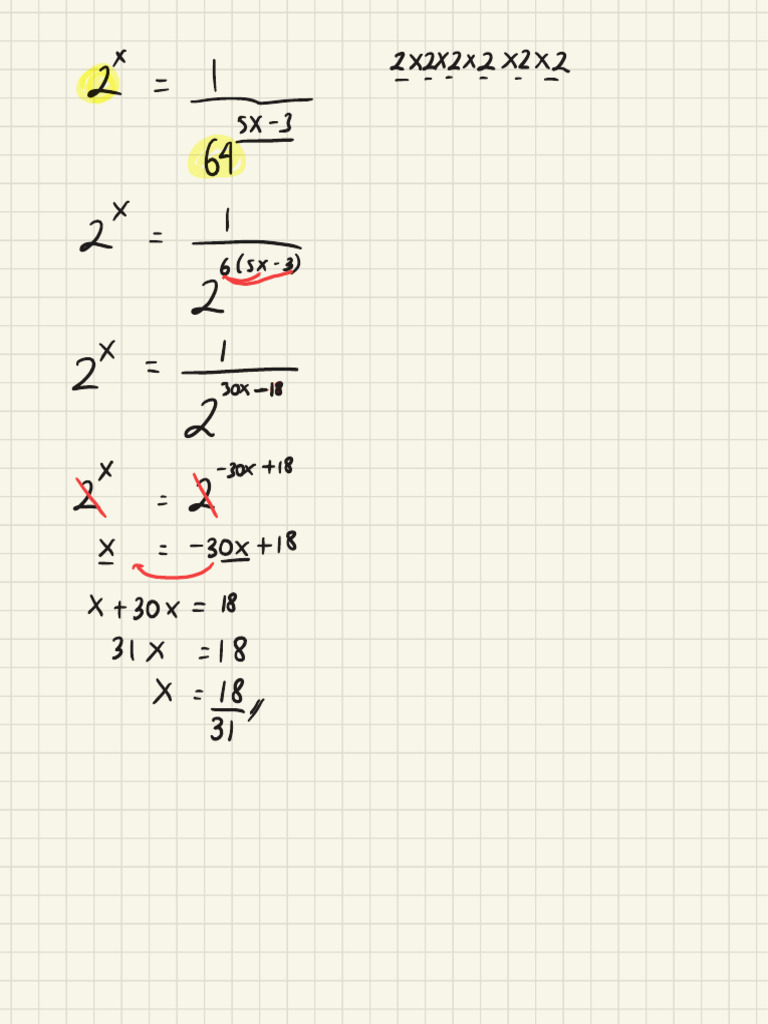 2^x = 1/64^(5x-3)
2×2×2×2×2×2
2^x = 1/2^(6(5x-3))
2^x = 1/2^(30x-18)
2^x = 2^(-30x+18)
x = -30x+18
x+30x = 18
31x = 18
x = 18/31 //